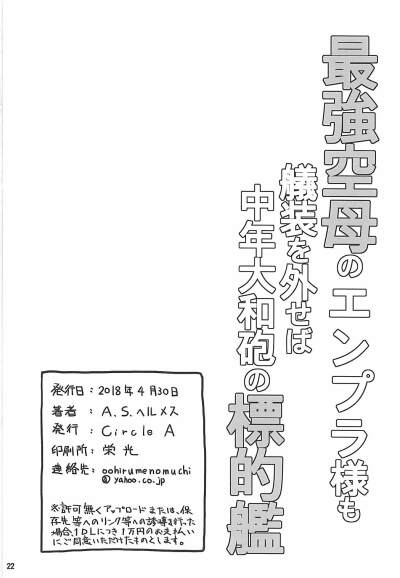 最強空母のエンプラ様も
艤装を外せば
中年大和砲の標的艦
発行日：2018年4月30日
著者：A.S.ヘルメス
発行：Circle A
印刷所：栄光
連絡先：oohirumenomuchi
@yahoo.co.jp
※許可無くアップロードまたは、保
存先等へのリンク等への誘導を行った
場合、1DLにつき1万円のお支払い
にご同意いただけたものとします。
22